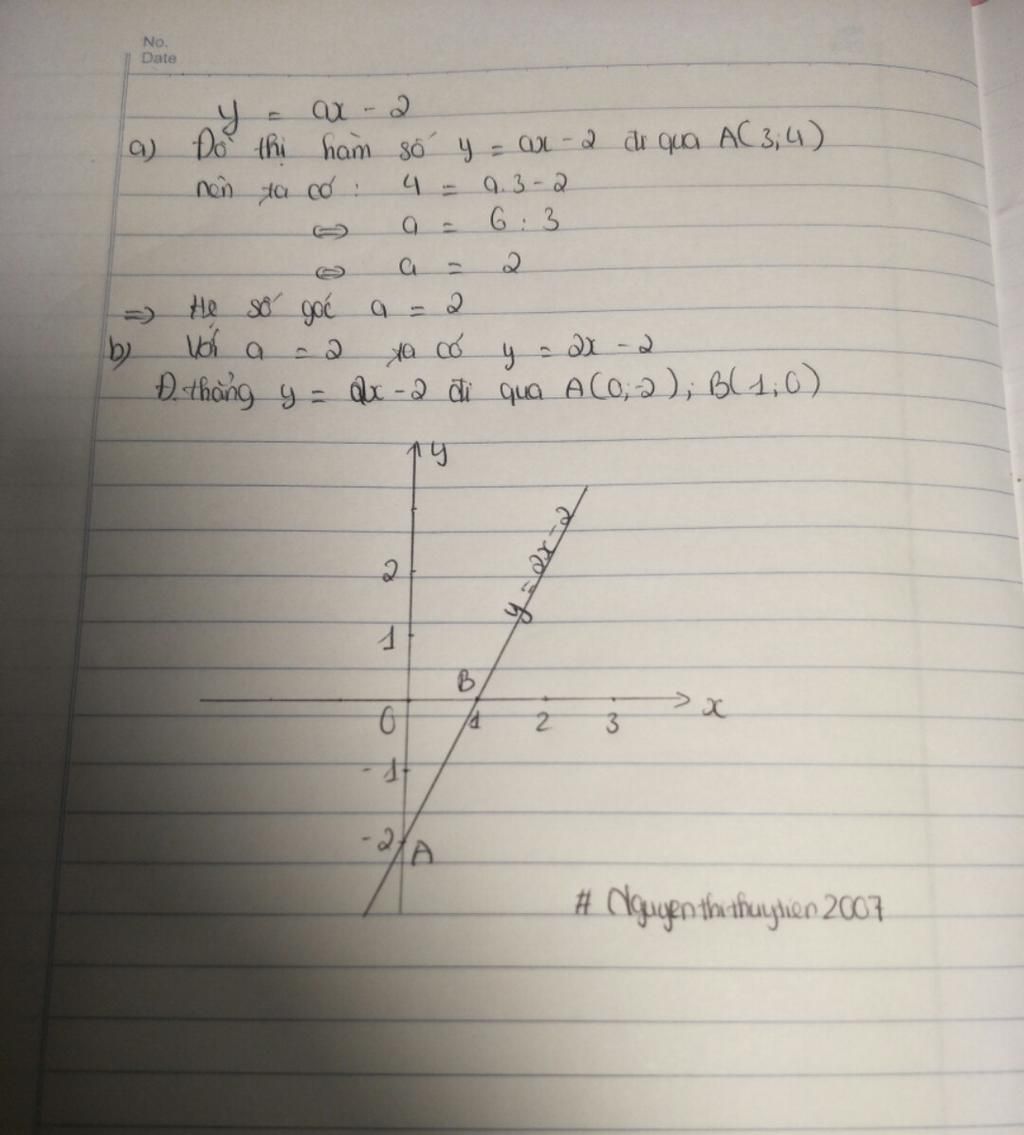 No.
Date
y = ax - 2
a) Đồ thị hàm số y = ax - 2 đi qua A(3;4)
nên ta có : 4 = a.3 - 2
⇔ a = 6 : 3
⇔ a = 2
⇒ Hệ số góc a = 2
b) Với a = 2 ta có y = 2x - 2
Đ.thẳng y = 2x - 2 đi qua A(0;-2); B(1;0)
y
y = 2x - 2
2
1
B
0 1 2 3 x
-1
-2 A
# Nguyenthithuytien2007